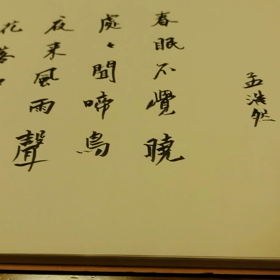 孟浩然
春眠不覺曉
處〻聞啼鳥
夜來風雨聲
花落